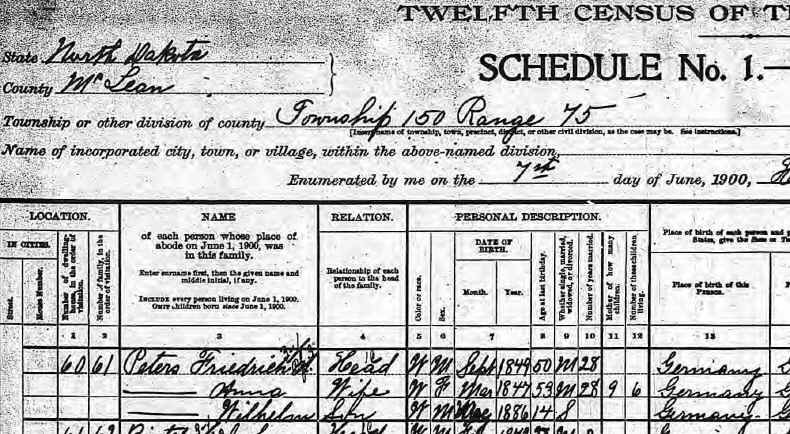 TWELFTH CENSUS OF
State North Dakota
County McLean
SCHEDULE No. 1.—
Township or other division of county Township 150 Range 75
[Insert name of township, town, precinct, district, or other civil division, as the case may be. See instructions.]
Name of incorporated city, town, or village, within the above-named division,
Enumerated by me on the 7th day of June, 1900,
LOCATION. NAME RELATION. PERSONAL DESCRIPTION.
IN CITIES. Street. House Number. Number of dwelling-house, in the order of visitation. Number of family, in the order of visitation.
of each person whose place of abode on June 1, 1900, was in this family.
Enter surname first, then the given name and middle initial, if any.
INCLUDE every person living on June 1, 1900.
OMIT children born since June 1, 1900.
Relationship of each person to the head of the family.
Color or race. Sex. DATE OF BIRTH. Month. Year. Age at last birthday. Whether single, married, widowed, or divorced. Number of years married. Mother of how many children. Number of these children living.
Place of birth of this PERSON.
1 2 3 4 5 6 7 8 9 10 11 12 13
60 61 Peters Friedrich Head W M Sept 1849 50 M 28 Germany
—— Anna Wife W F Mar 1847 53 M 28 9 6 Germany
—— Wilhelm Son W M 1886 14 S Germany